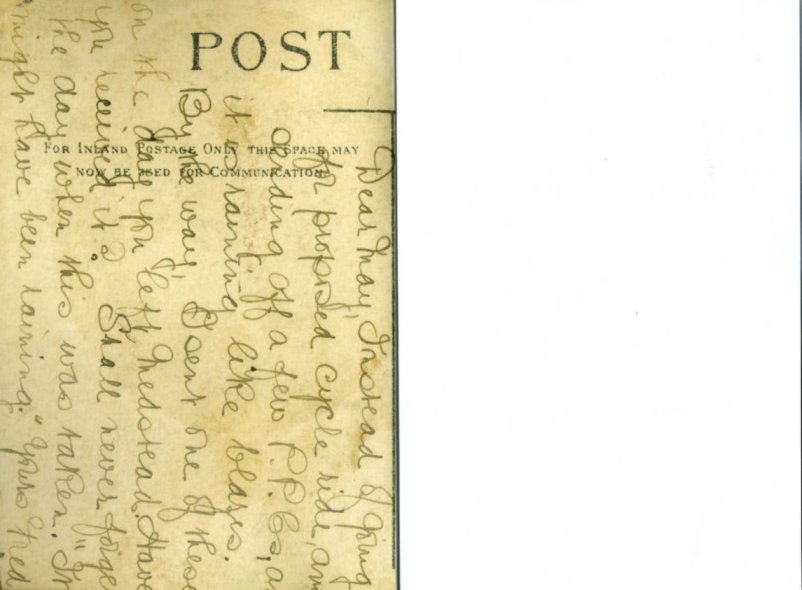 POST
FOR INLAND POSTAGE ONLY THIS SPACE MAY
NOW BE USED FOR COMMUNICATION.
Dear May, Instead of going
for proposed cycle ride, am
sending off a few P.P.Cs, as
it is raining like blazes.
By the way, I sent one of these
on the day you left Medstead. Have
you received it? Shall never forge
the day when this was taken. "It
might have been raining." Yours Fred